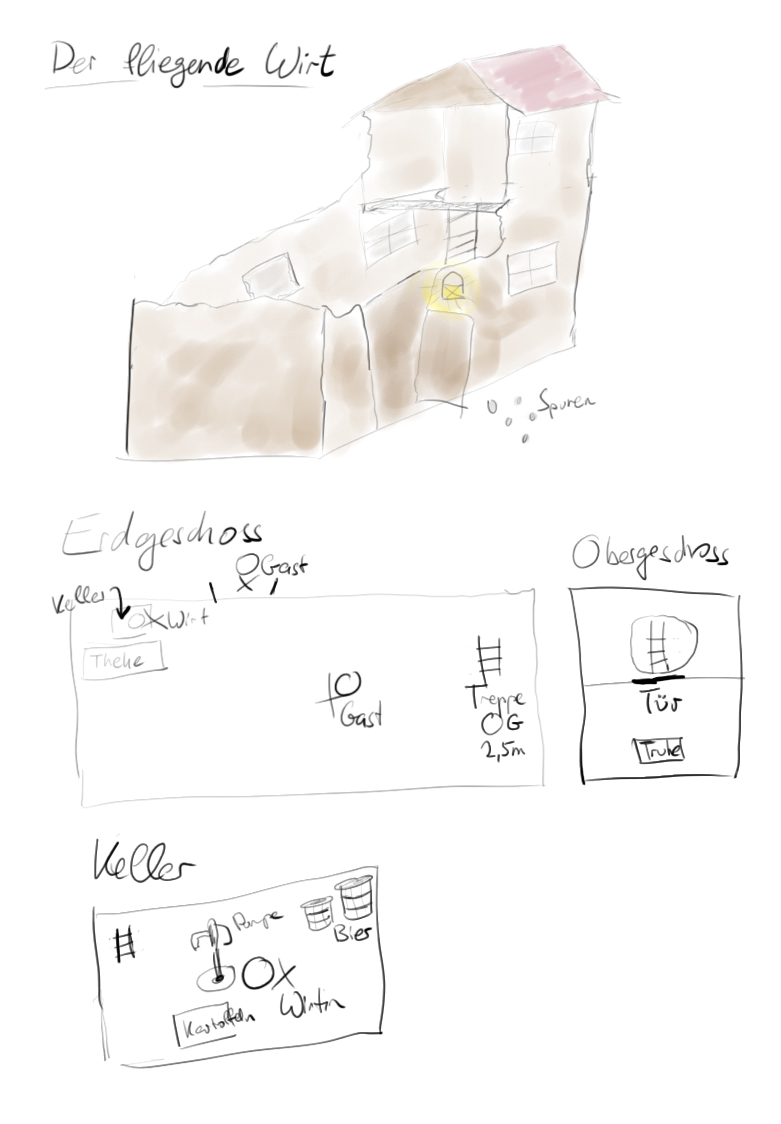 Der fliegende Wirt
Spuren
Erdgeschoss
Gast
Keller
Wirt
Theke
Gast
Treppe
OG
2,5m
Obergeschoss
Tür
Truhe
Keller
Pumpe
Bier
Wirtin
Kartoffeln